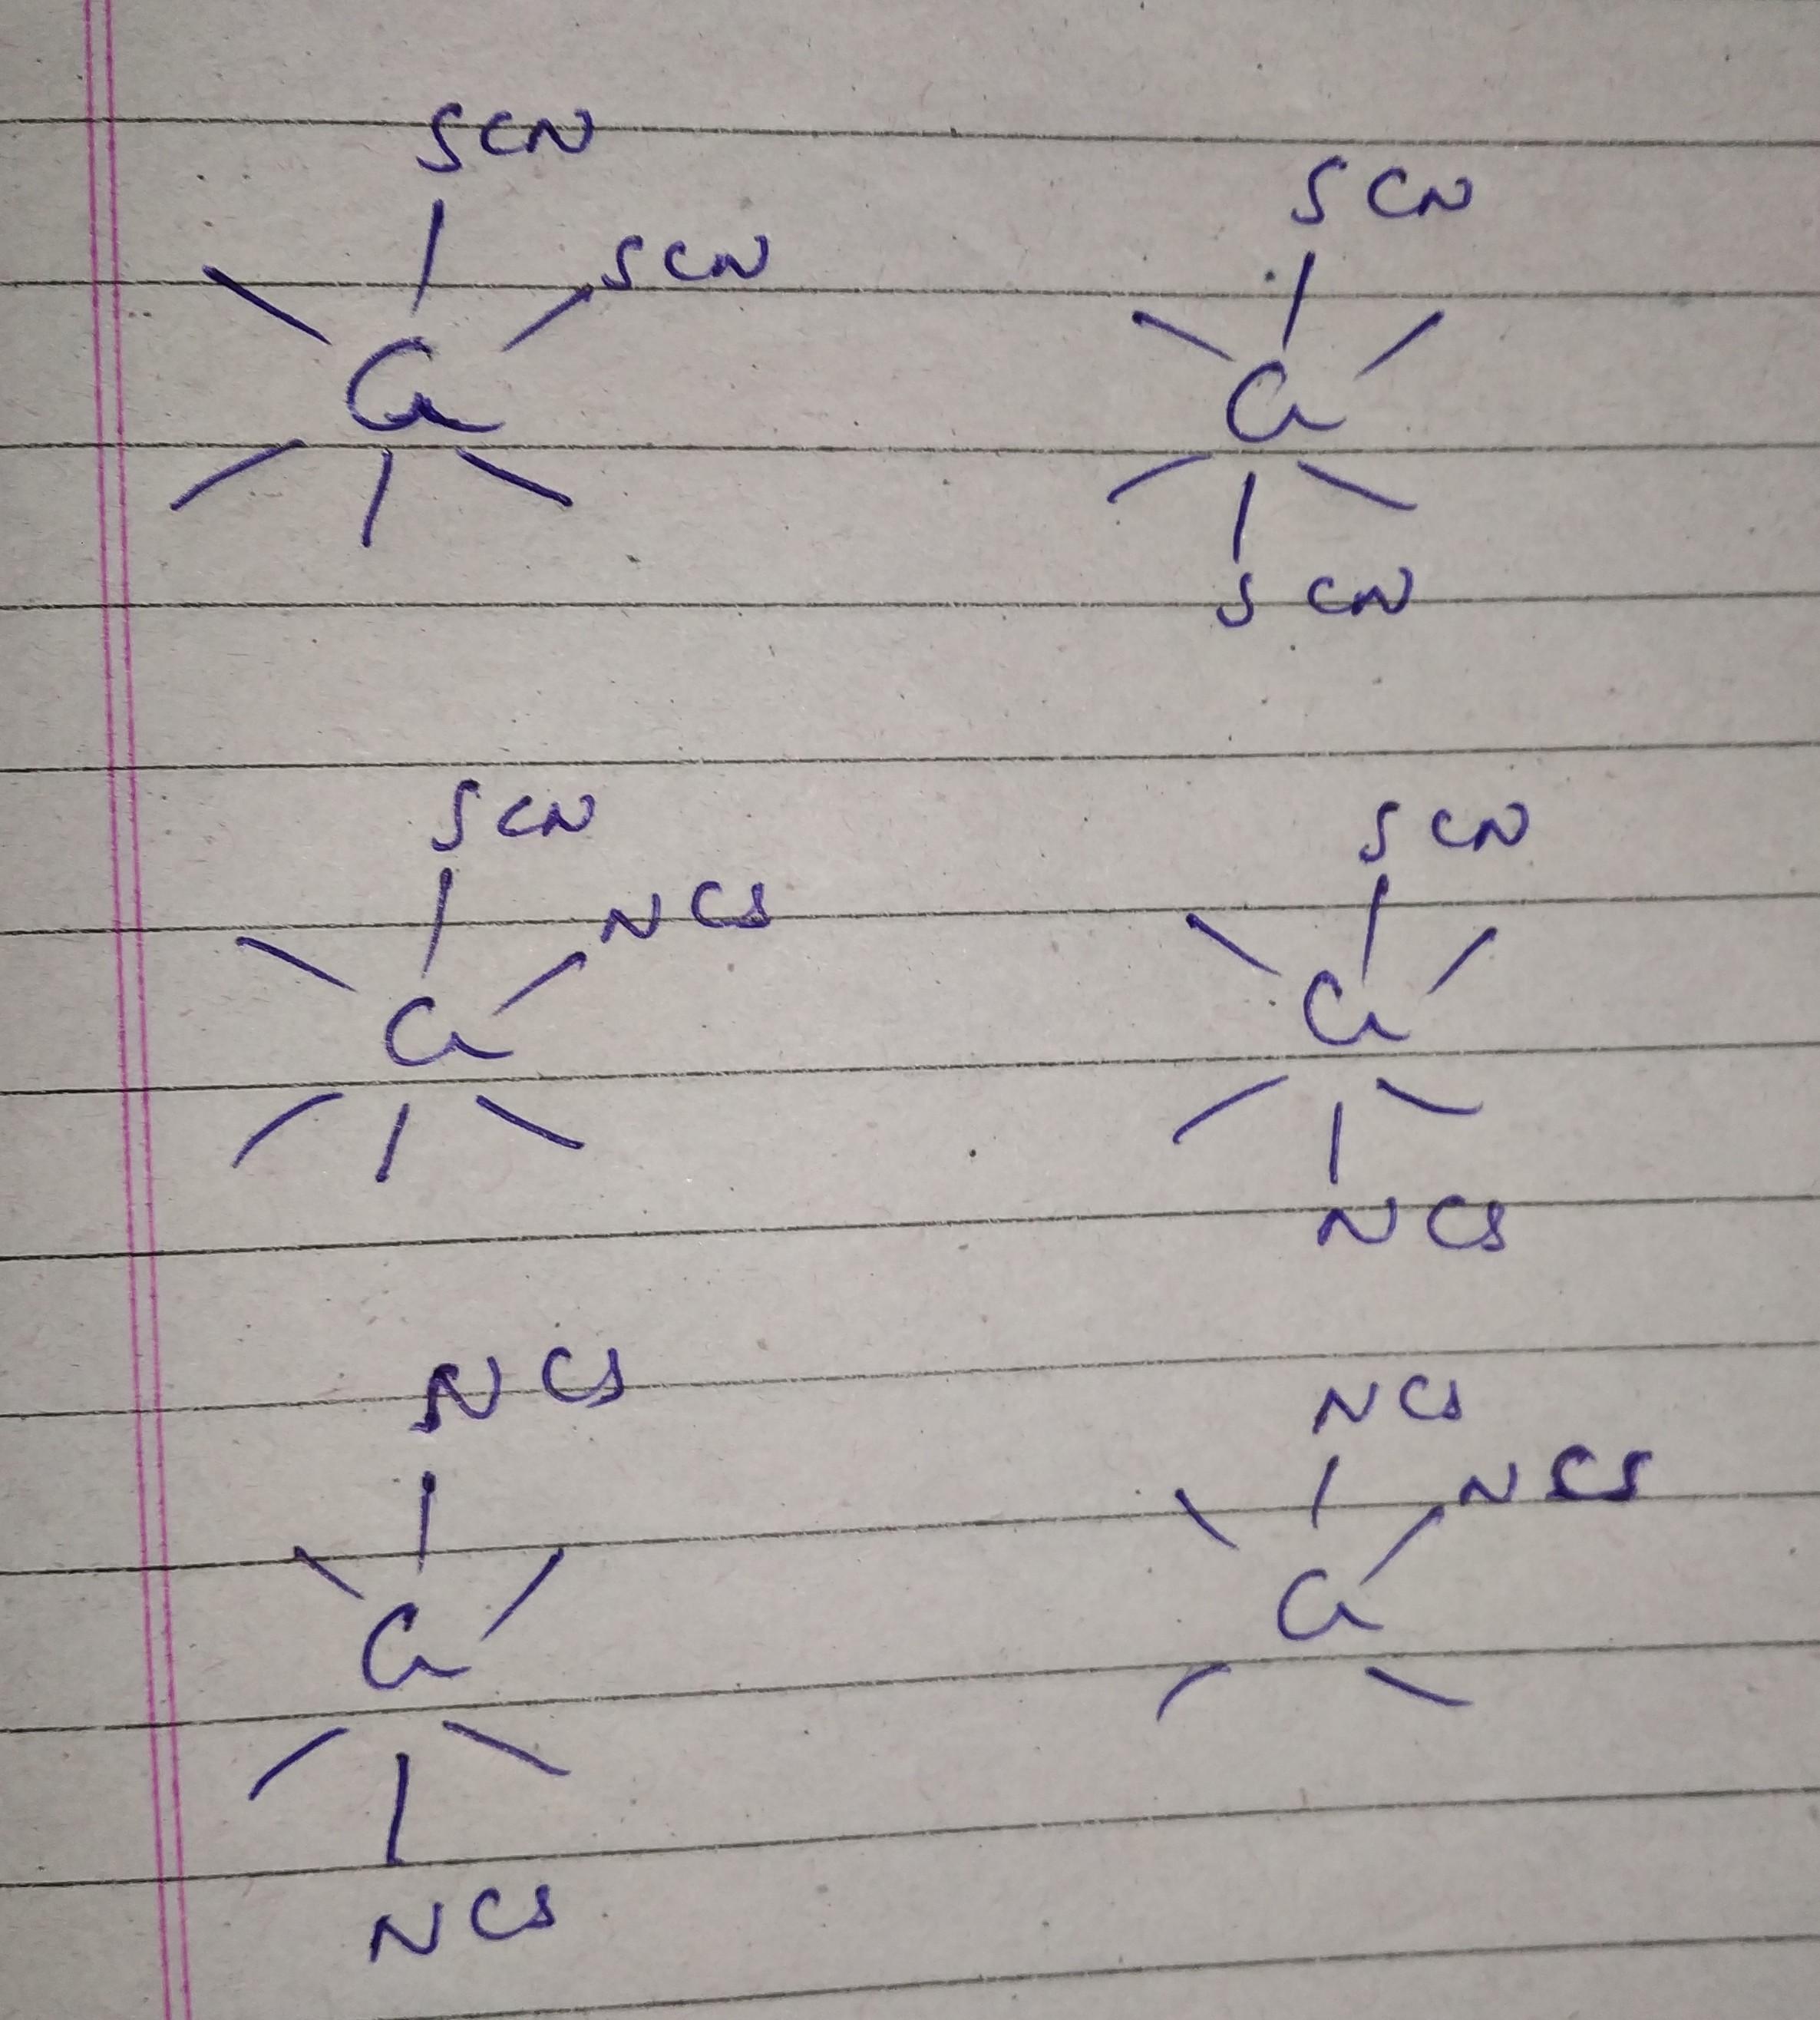 SCN
SCN
Cr
SCN
Cr
SCN
SCN
NCS
Cr
SCN
Cr
NCS
NCS
Cr
NCS
NCS
NCS
Cr